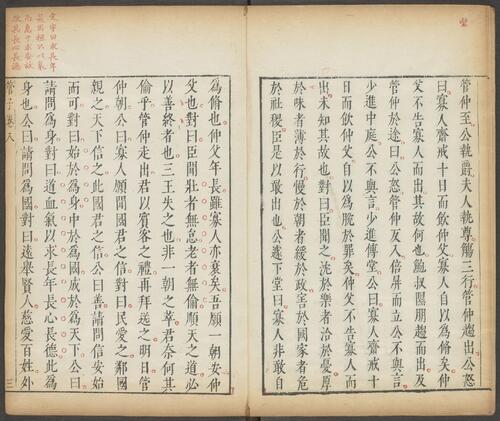 管仲至公執爵夫人執尊觴三行管仲趨出公怒
曰寡人齋戒十日而飲仲父寡人自以為脩矣仲
父不告寡人而出其故何也鮑叔隰朋趨而出及
管仲於途曰公怒管仲反入倍屏而立公不與言
少進中庭公不與言少進傅堂公曰寡人齋戒十
日而飲仲父自以為脫於罪矣仲父不告寡人而
出未知其故也對曰臣聞之沈於樂者洽於憂厚
於味者薄於行慢於朝者緩於政害於國家者危
於社稷臣是以敢出也公遽下堂曰寡人非敢自
為脩也仲父年長雖寡人亦衰矣吾願一朝安仲
父也對曰臣聞壯者無怠老者無偷順天之道必
以善終者也三王失之也非一朝之萃君奈何其
偷乎管仲走出君以賓客之禮再拜送之明日管
仲朝公曰寡人願聞國君之信對曰民愛之鄰國
親之天下信之此國君之信公曰善請問信安始
而可對曰始於為身中於為國成於為天下公曰
請問為身對曰道血氣以求長年長心長德此為
身也公曰請問為國對曰遠舉賢人慈愛百姓外
管子卷八 三